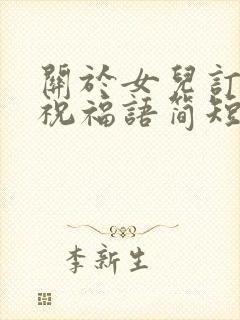 關於女兒訂
祝福語簡短
李新生